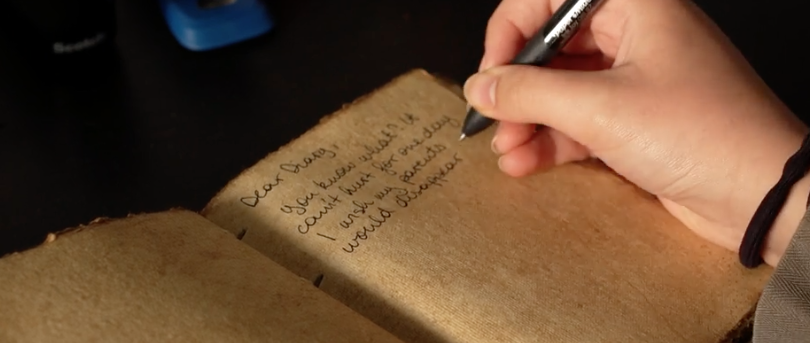 Dear Diary,
You know what? It
can't hurt for one day
I wish my parents
would disappear